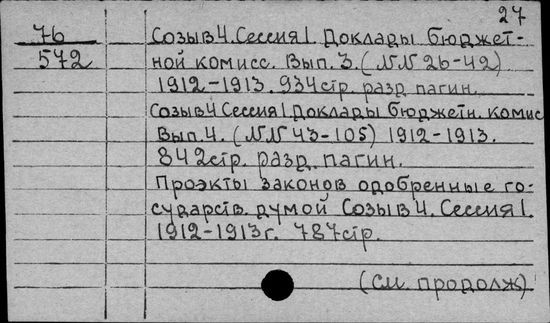 27
76 Созыв 4. Сессия 1. Доклады бюджет-
572 ной комисс. Вып. 3. (NN 26-42)
1912-1913. 934 стр. разд. пагин.
Созыв 4 Сессия 1 Доклады бюджетн. комис
Вып. 4. (NN 43-105) 1912-1913.
842 стр. разд. пагин.
Проэкты законов одобренные го-
сударств. думой Созыв 4. Сессия 1.
1912-1913 г. 787 стр.
(см. продолж)